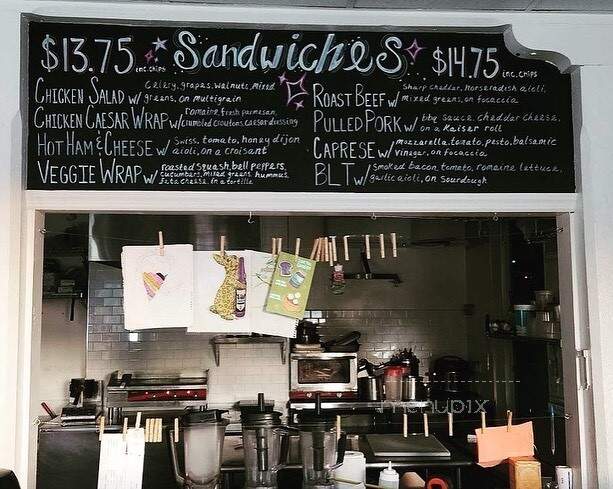 $13.75 inc. chips Sandwiches $14.75 inc. chips
Chicken Salad w/ celery, grapes, walnuts, mixed
greens, on multigrain
Chicken Caesar Wrap w/ romaine, fresh parmesan,
crumbled croutons, caesar dressing
Hot Ham & Cheese w/ Swiss, tomato, honey dijon
aioli, on a croisant
Veggie Wrap w/ roasted squash, bell peppers,
cucumbers, mixed greens, hummus,
feta cheese, in a tortilla
Roast Beef w/ sharp cheddar, horseradish aioli,
mixed greens, on focaccia
Pulled Pork w/ bbq sauce, cheddar cheese,
on a Kaiser roll
Caprese w/ mozzarella, tomato, pesto, balsamic
vinegar, on focaccia
BLT w/ smoked bacon, tomato, romaine lettuce,
garlic aioli, on sourdough
menupix